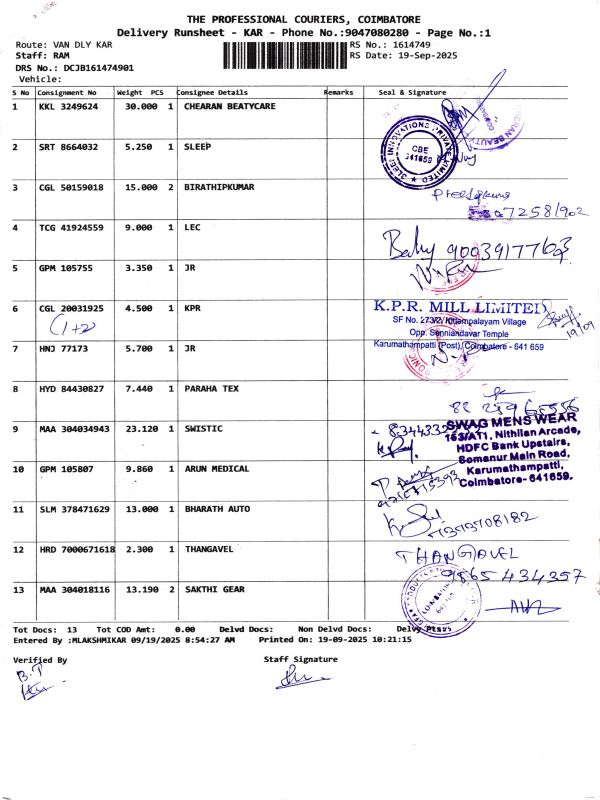 THE PROFESSIONAL COURIERS, COIMBATORE
Delivery Runsheet - KAR - Phone No.:9047080280 - Page No.:1
Route: VAN DLY KAR RS No.: 1614749
Staff: RAM RS Date: 19-Sep-2025
DRS No.: DCJB161474901
Vehicle:
S No Consignment No Weight PCS Consignee Details Remarks Seal & Signature
1 KKL 3249624 30.000 1 CHEARAN BEATYCARE
2 SRT 8664032 5.250 1 SLEEP
CBE
641659
3 CGL 50159018 15.000 2 BIRATHIPKUMAR
72581902
4 TCG 41924559 9.000 1 LEC
Baby 9003917763
5 GPM 105755 3.350 1 JR
6 CGL 20031925 4.500 1 KPR
(1+2)
K.P.R. MILL LIMITED
SF No. 273/2, Kittampalayam Village
Opp. Senniandavar Temple
Karumathampatti (Post), Coimbatore - 641 659
19/09
7 HNJ 77173 5.700 1 JR
8 HYD 84430827 7.440 1 PARAHA TEX
9 MAA 304034943 23.120 1 SWISTIC
SWAG MENS WEAR
153/AT1, Nithilan Arcade,
HDFC Bank Upstairs,
Somanur Main Road,
Karumathampatti,
Coimbatore- 641659.
10 GPM 105807 9.860 1 ARUN MEDICAL
11 SLM 378471629 13.000 1 BHARATH AUTO
12 HRD 7000671618 2.300 1 THANGAVEL
THANGAVEL
9865434357
13 MAA 304018116 13.190 2 SAKTHI GEAR
Tot Docs: 13 Tot COD Amt: 0.00 Delvd Docs: Non Delvd Docs: Delvy Staff:
Entered By :MLAKSHMIKAR 09/19/2025 8:54:27 AM Printed On: 19-09-2025 10:21:15
Verified By Staff Signature
B.T